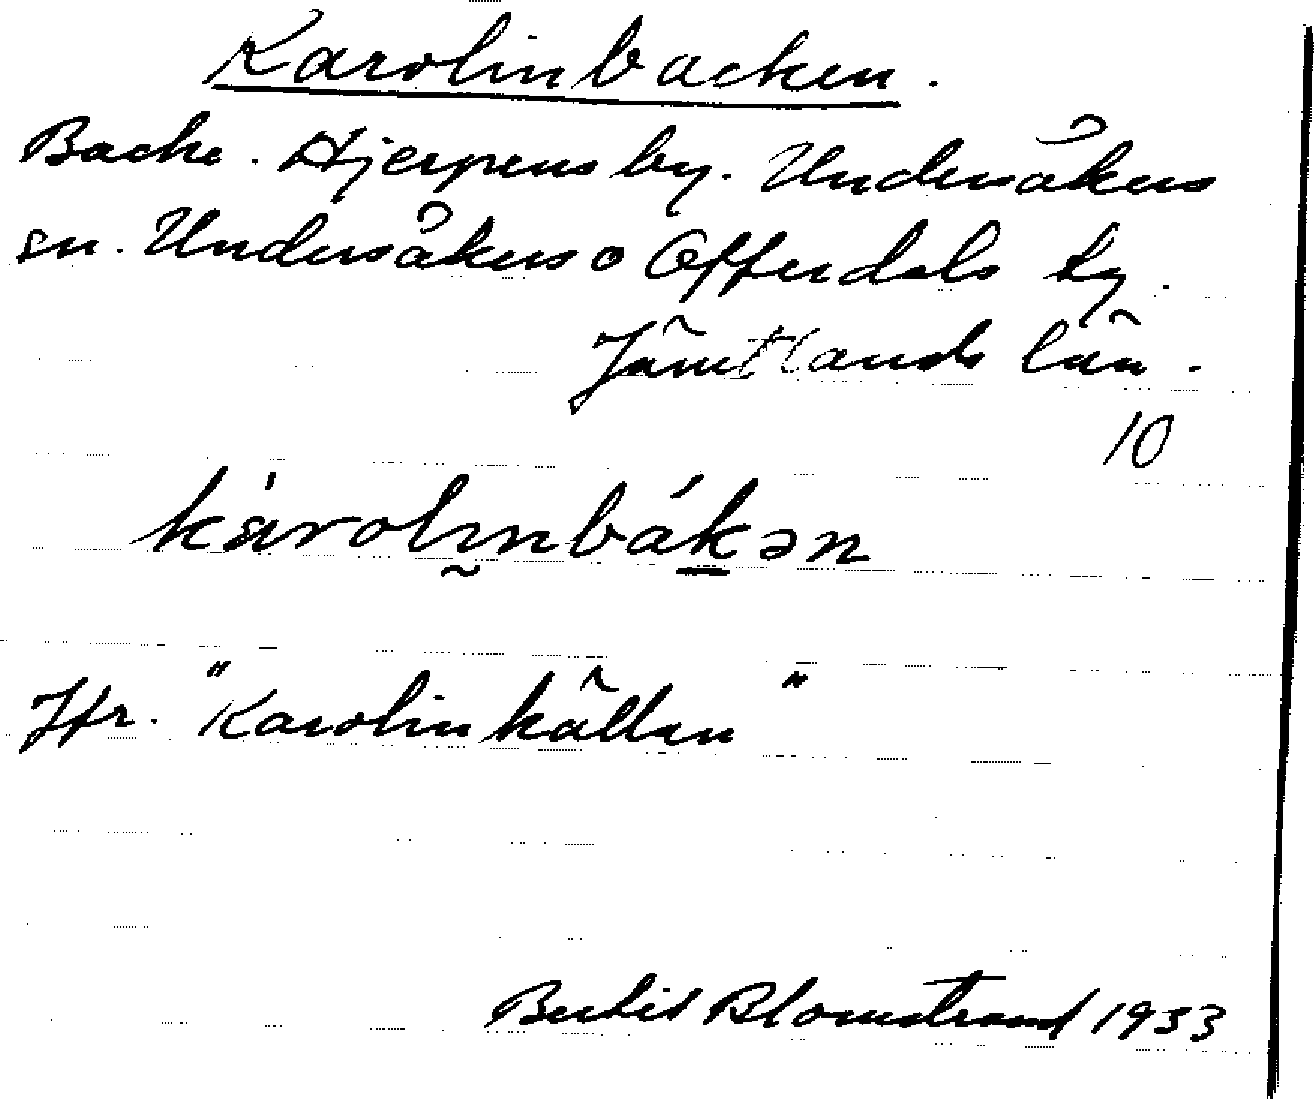 Karolinbacken.
Backe. Hjerpens by. Undersåkers
sn. Undersåkers o Offerdals tg.
Jämtlands län.
10
kàrolinbákən
Jfr. "Karolinkällan"
Bertil Blomstrand 1933